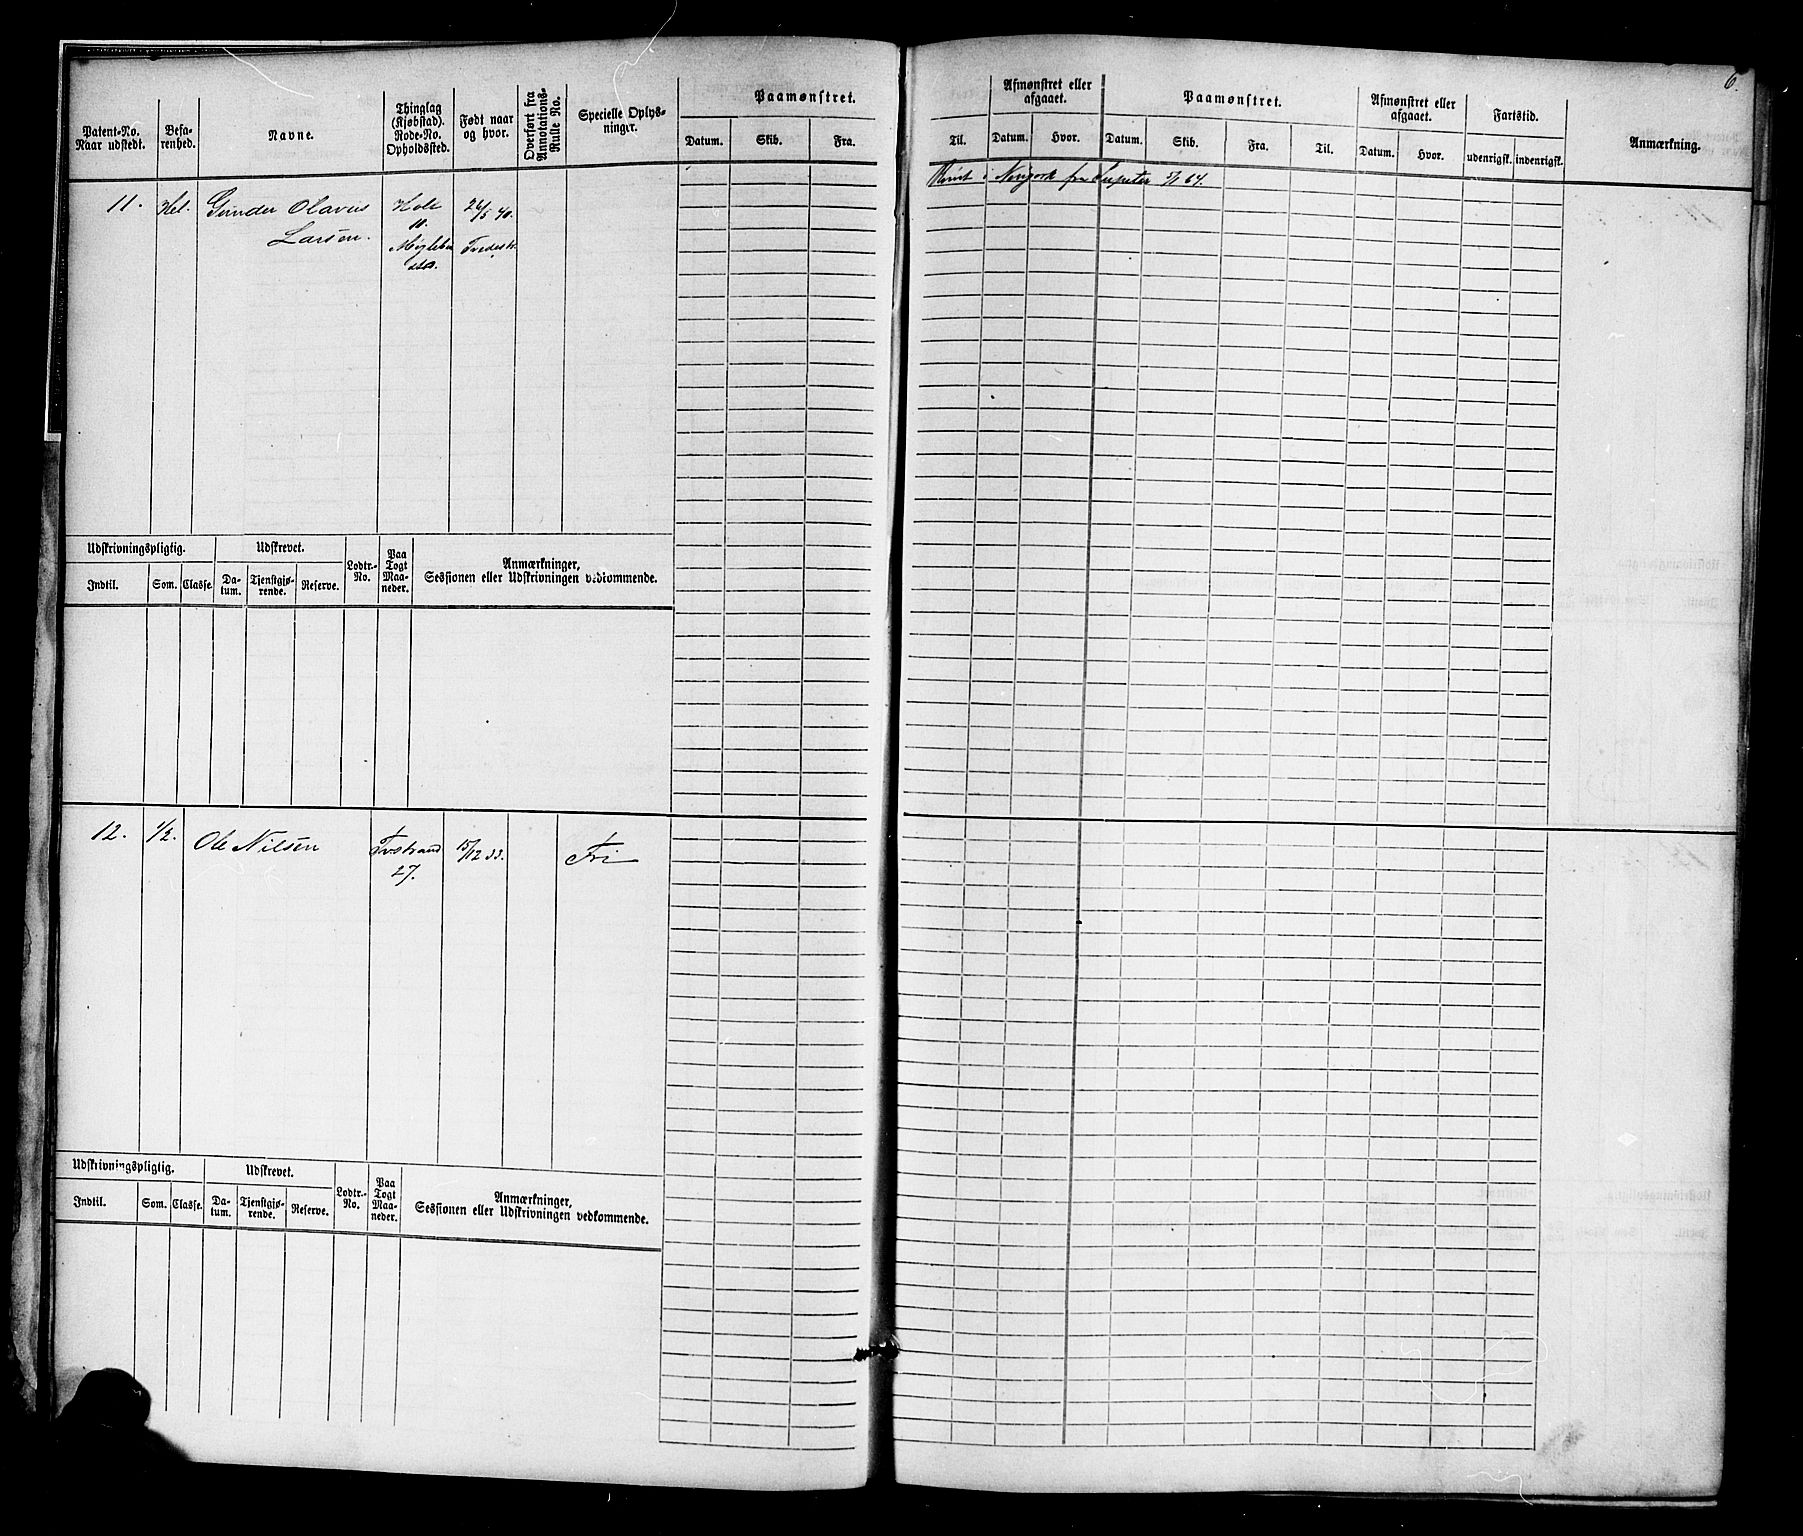 6.
Patent-No. Naar udstedt.
Befarenhed.
Navne.
Thinglag (Kjøbstad). Rode-No. Opholdssted.
Født naar og hvor.
Overført fra Annotations-Rulle No.
Specielle Oplysninger.
Paamønstret.
Datum. Skib. Fra.
Til.
Afmønstret eller afgaaet.
Datum. Hvor.
Paamønstret.
Datum. Skib. Fra. Til.
Afmønstret eller afgaaet.
Datum. Hvor.
Fartstid.
udenrigsk. indenrigsk.
Anmærkning.
Rømt i Newyork fra Jupiter 5/1 64.
11. Hel. Gunder Olavus Holt 24/5 40.
Larsen. 11.
Tvedestr.
Udskrivningspligtig. Udskrevet. Lodtr.-No. Paa Togt Maaneder. Anmærkninger, Sessionen eller Udskrivningen vedkommende.
Indtil. Som. Classe. Datum. Tjenstgjørende. Reserve.
12. 1/2. Ole Nilsen Tvstrand 15/12 33. Fri
27.
Udskrivningspligtig. Udskrevet. Lodtr.-No. Paa Togt Maaneder. Anmærkninger, Sessionen eller Udskrivningen vedkommende.
Indtil. Som. Classe. Datum. Tjenstgjørende. Reserve.